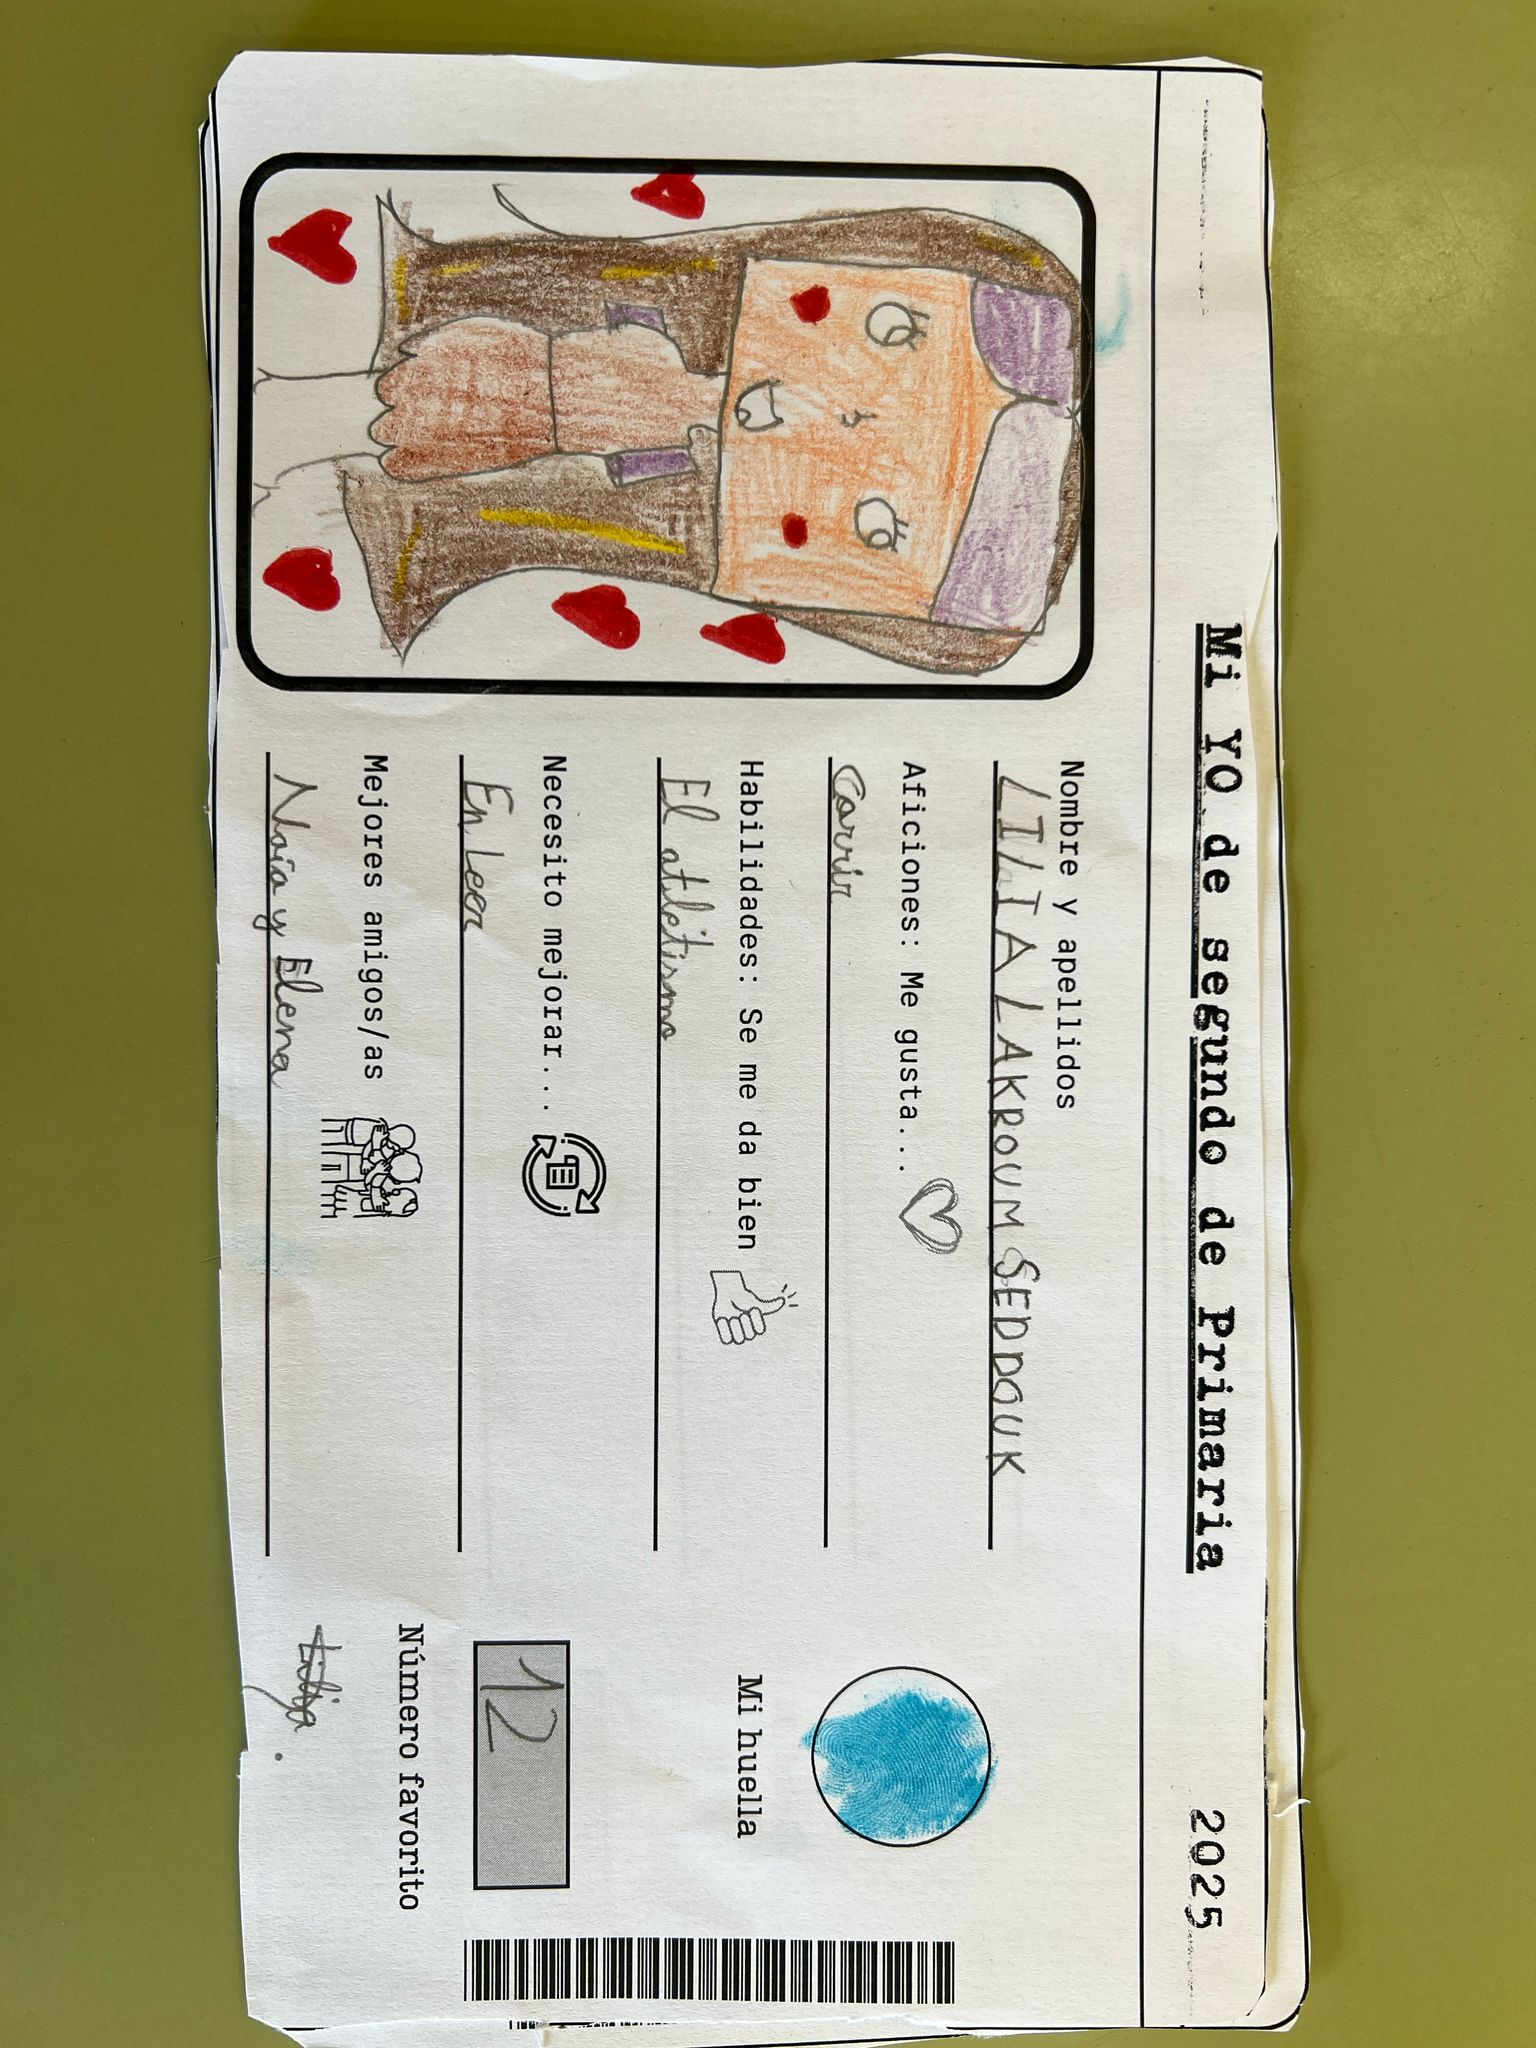 Mi YO de segundo de Primaria
2025
Nombre y apellidos
LILIA LAKROUM SEDDOUK
Aficiones: Me gusta...
Corrir
Habilidades: Se me da bien
El atletismo
Necesito mejorar...
En Leer
Mejores amigos/as
Naía y Elena
Mi huella
12
Número favorito
Lilia.